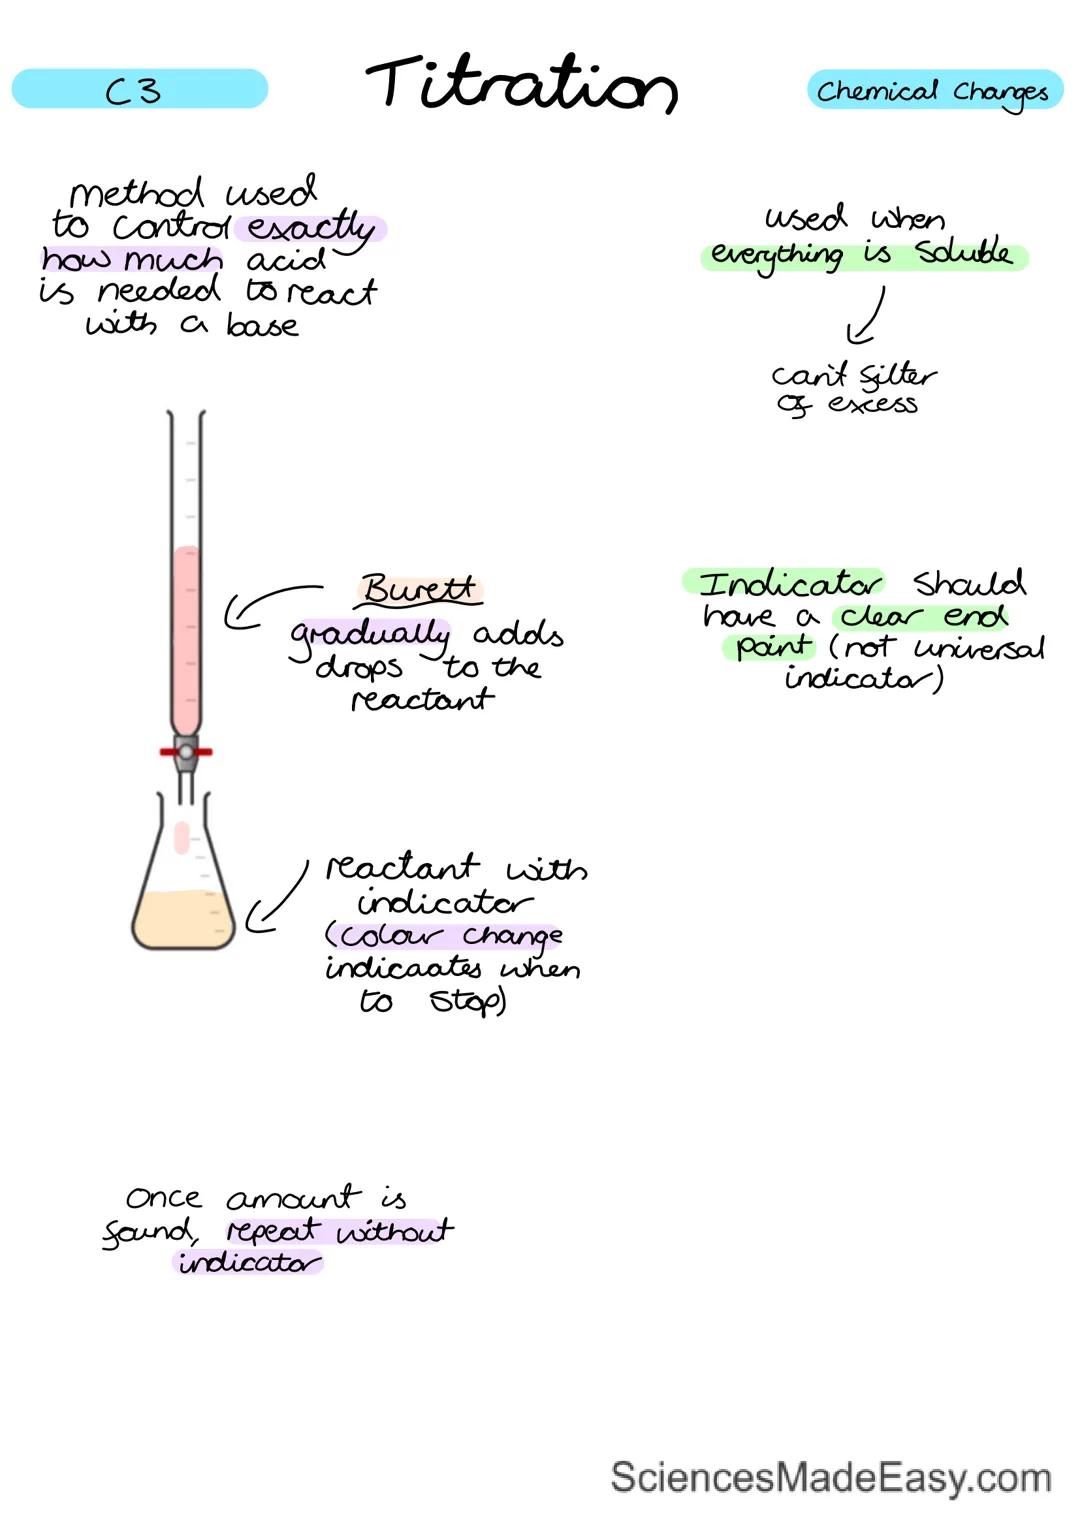 C3
Titration
Chemical Changes
method used
to control exactly
how much acid
is needed to react
with a base
used when
everything is soluble
can't filter
of excess
Burett
gradually adds
drops to the
reactant
Indicator should
have a clear end
point (not universal
indicator)
reactant with
indicator
(colour change
indicaates when
to stop)
Once amount is
found, repeat without
indicator
SciencesMadeEasy.com